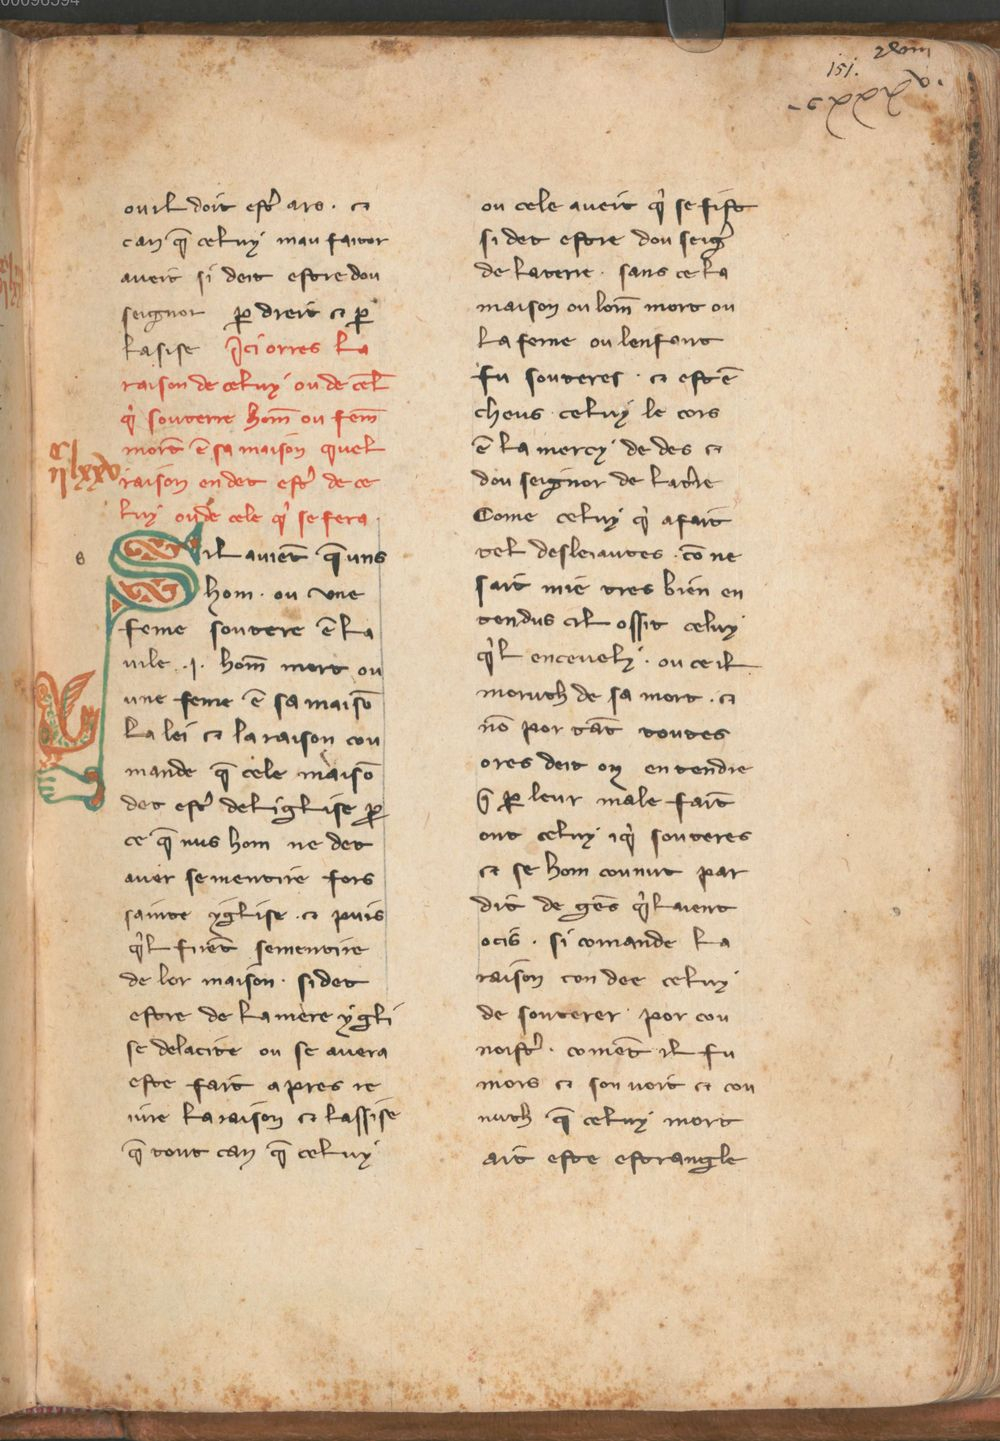 00096594
151.
ou il doit estr̃ ars · ⁊
can q̃ celuy mau faitor
aveit si deit estre dou
seignor p̲ dreit ⁊ p̲
lasise Ici orres la
raison de celuy ou de cel̃
q̍ souterre hom̃ ou fem̃
mort ẽ sa maison quel
raison en det estr̃ de ce
luy ou de cele q̍ se fera ·
s
Sil avient̃ q̃ uns
hom · ou une
feme soutere ẽ la
vile .i. hom̃ mort ou
une feme ẽ sa maisõ
la lei ⁊ la raison cou
mande q̃ cele maisõ
det estr̃ de liglise p̲
ce q̃ nus hom ne det
aver sementire fors
sainte yglise · ⁊ puis
q̍l firẽt sementire
de lor maison · si det
estre de la mere ygli
se de la cite ou se avera
este fait apres ie
iure la raison ⁊ lassise
q̃ tout can q̃ celuy
ou cele aveit q̍ se fist
si det estre dou seigr̃
de la terre · sans ce la
maison ou lom̃ mort ou
la feme ou lenfant
fu souteres · ⁊ est ẽ
cheus celuy le cors
ẽ la mercy de des ⁊
dou seignor de la t̍re
Come celuy q̍ a fait
tel desleiautes · cõ ne
sait mie tres bien en
tendus cil ossit celuy
q̍l encevely · ou ce il
moruth de sa mort · ⁊
nõ por tãt toutes
ores deit on entendre
q̃ p̲ leur male fait̃
ont celuy iq̍ souteres
⁊ se hom counut par
dit de gẽs q̍l aient
ocis · si comande la
raison con dee celuy
de souterer por cou
noistr̃ · comẽt il fu
mors ⁊ son voit ⁊ cou
nuth q̃ celuy mort
ait este estrangle